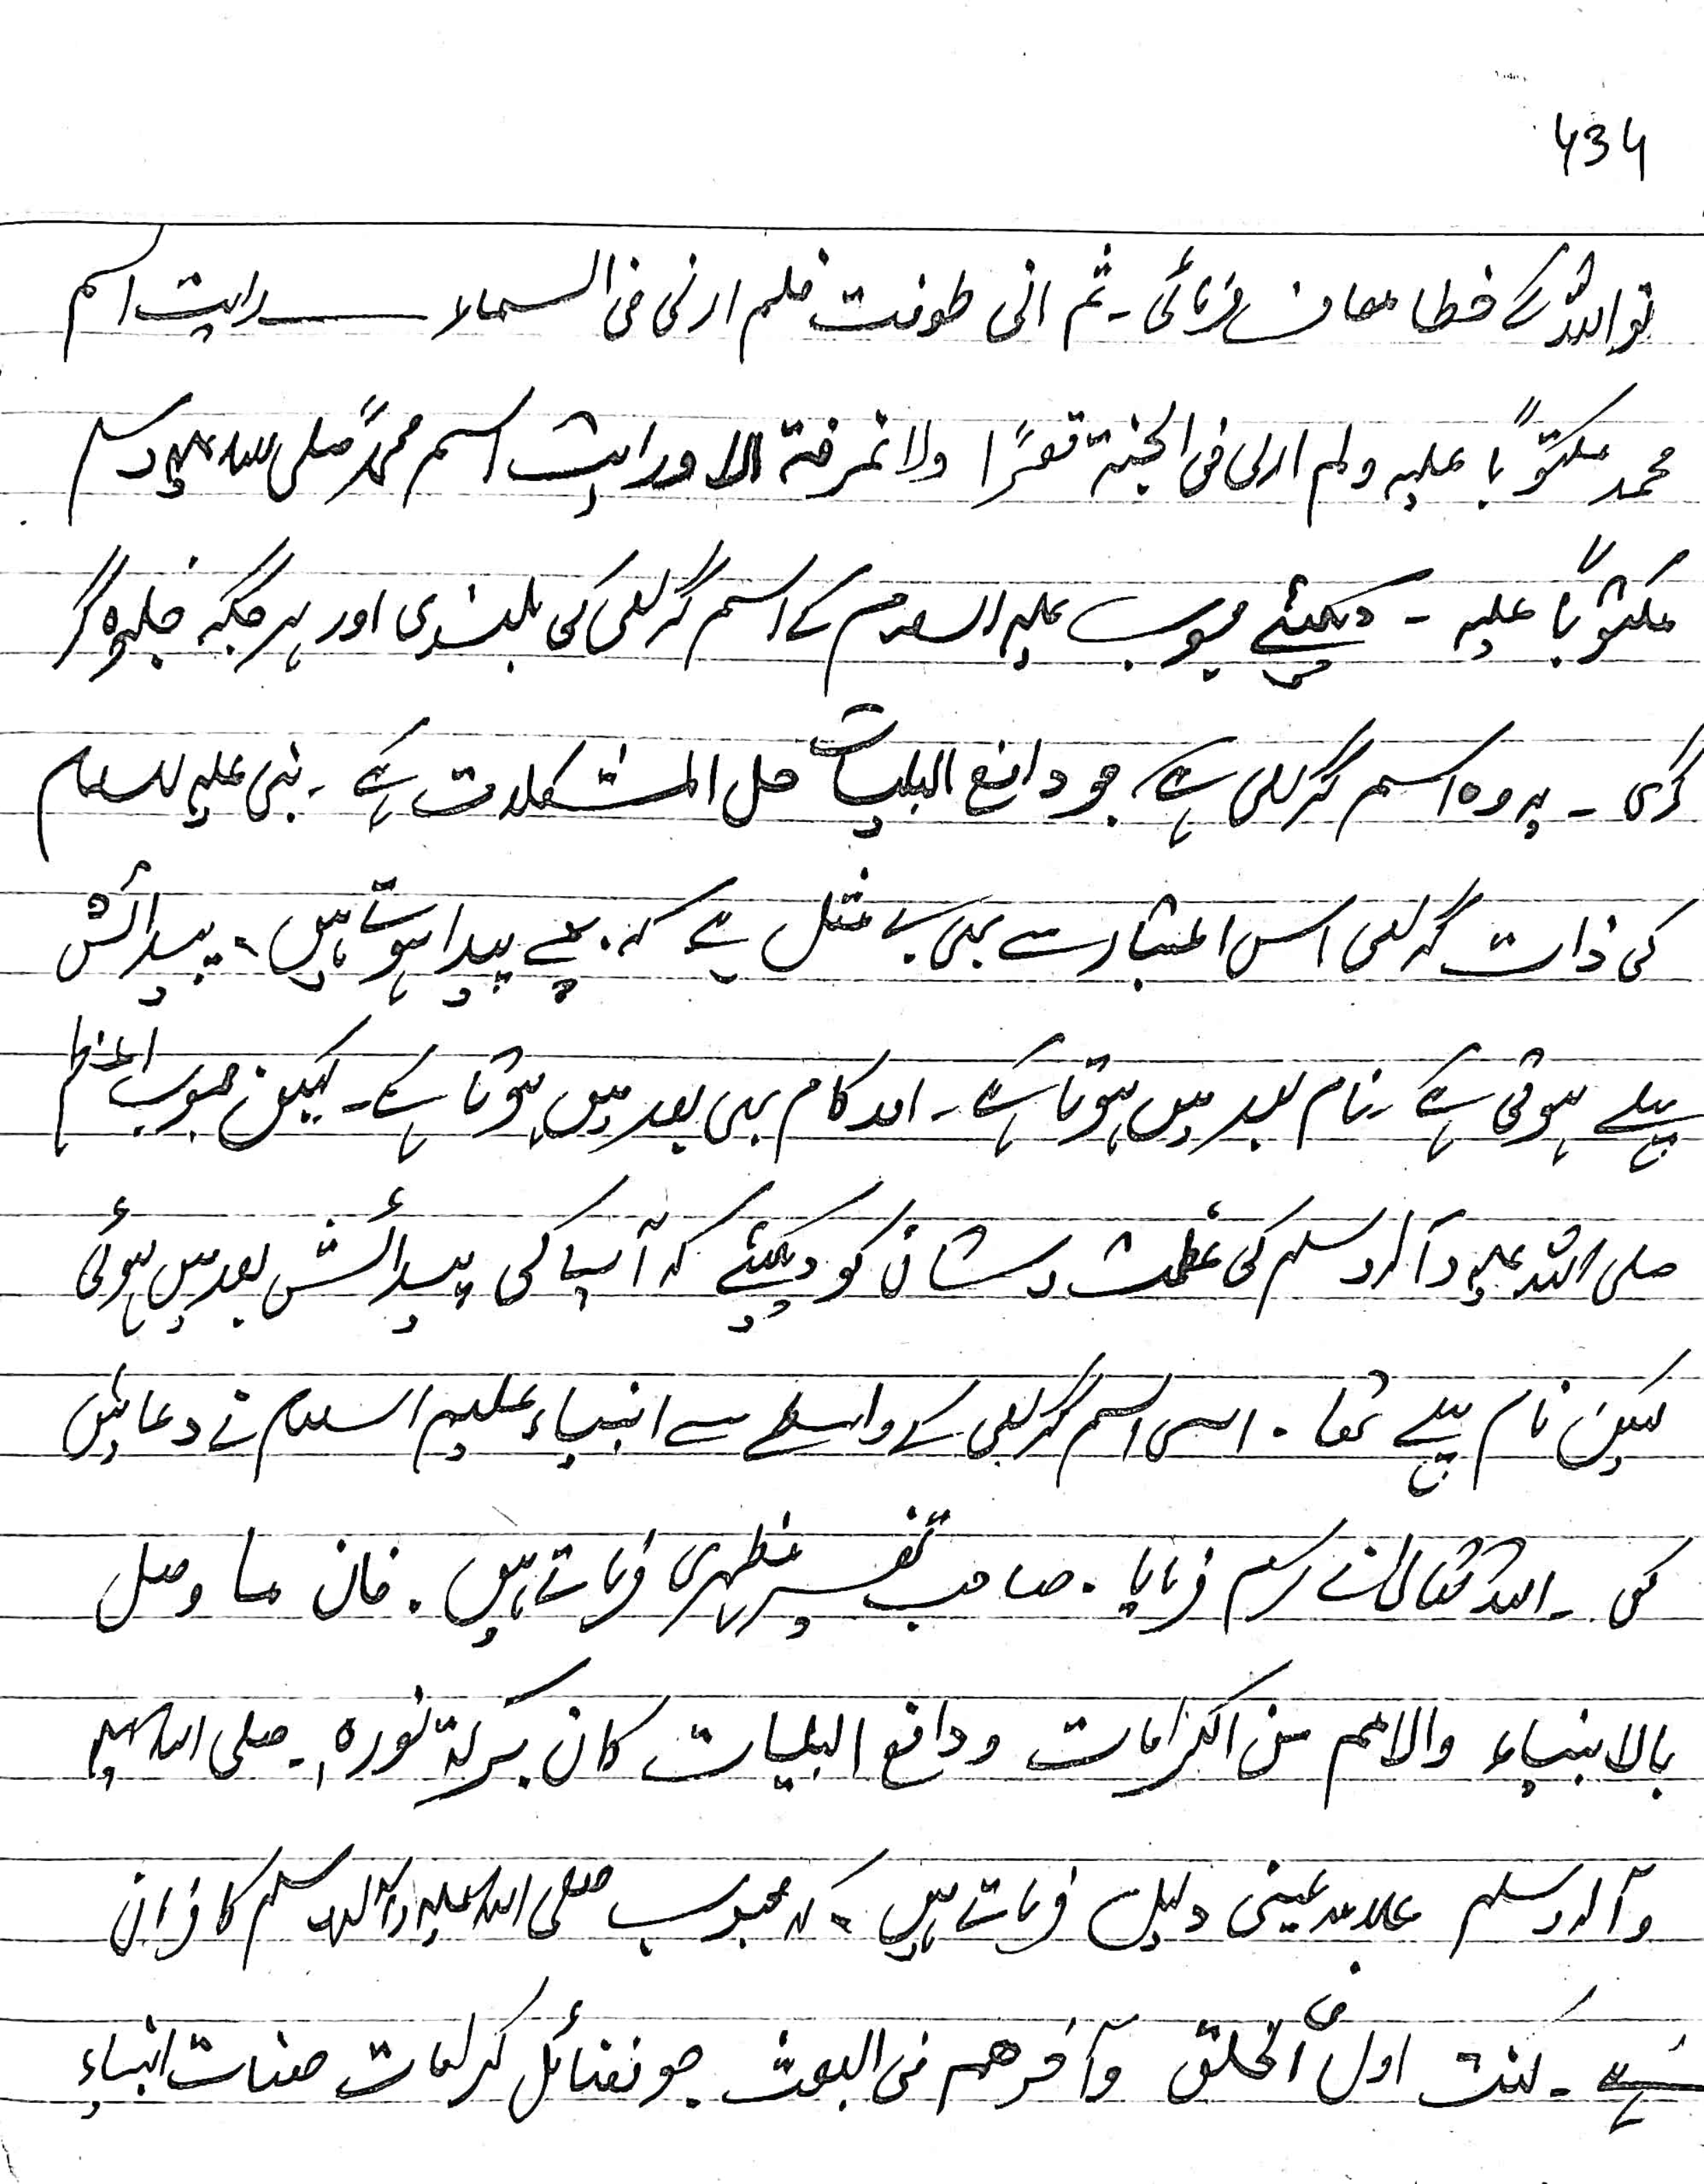 434
تو اللہ نے خطا معاف فرمائی ۔ ثم انی طوفت فلم ار فی السماء رایت اسم
محمد مکتوباً علیہ ولم ار فی الجنۃ قصرًا ولا غرفۃ الا ورایت اسم محمدً صلی اللہ علیہ وسلم
مکتوباً علیہ ۔ دیکھئے محبوب علیہ السلام کے اسم گرامی کی بلندی اور ہر جگہ جلوہ گر
گری ۔ یہ وہ اسم گرامی ہے جو دافع البلیات حل المشکلات ہے ۔ نبی علیہ السلام
کی ذات گرامی اس اعتبار سے بھی بے مثل ہے کہ بچے پیدا ہوتے ہیں ، پیدائش
پہلے ہوتی ہے نام بعد میں ہوتا ہے ۔ اور کام بھی بعد میں ہوتا ہے ۔ لیکن محبوب اعظم
صلی اللہ علیہ وآلہ وسلم کی عظمت و شان کو دیکھئے کہ آپ کی پیدائش بعد میں ہوئی
لیکن نام پہلے تھا ۔ اسی اسم گرامی کے واسطے سے انبیاء علیہم السلام نے دعائیں
کی ۔ اللہ تعالیٰ نے کرم فرمایا ۔ صاحب تفسیر مظہری فرماتے ہیں ۔ فان ما وصل
بالانبیاء والامم من الکرامات ودافع البلیات کان برکۃ نورہ ۔ صلی اللہ علیہ
وآلہ وسلم علامہ عینی دلیل فرماتے ہیں ، کہ محبوب صلی اللہ علیہ وآلہ وسلم کا فرمان
ہے ۔ کنت اول فی الخلق وآخرھم فی البعث جو فضائل کرامات صفات انبیاء